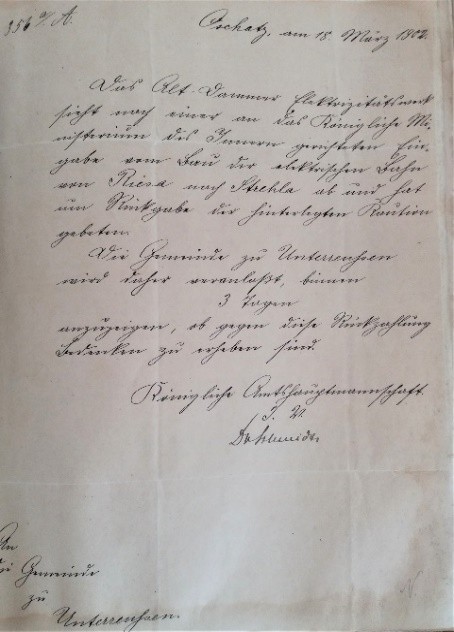 356 I/A.
Oschatz, am 18. März 1902.
Das Alt-Dammer Elektrizitätswerk
sieht nach einer an das Königliche Mi-
nisterium des Innern gerichteten Ein-
gabe vom Bau der elektrischen Bahn
von Riesa nach Strehla ab und hat
um Rückgabe der hinterlegten Kaution
gebeten.
Die Gemeinde zu Unterreußen
wird daher veranlaßt, binnen
3 Tagen
anzuzeigen, ob gegen diese Rückzahlung
Bedenken zu erheben sind.
Königliche Amtshauptmannschaft.
I. V.
An
die Gemeinde
zu
Unterreußen.